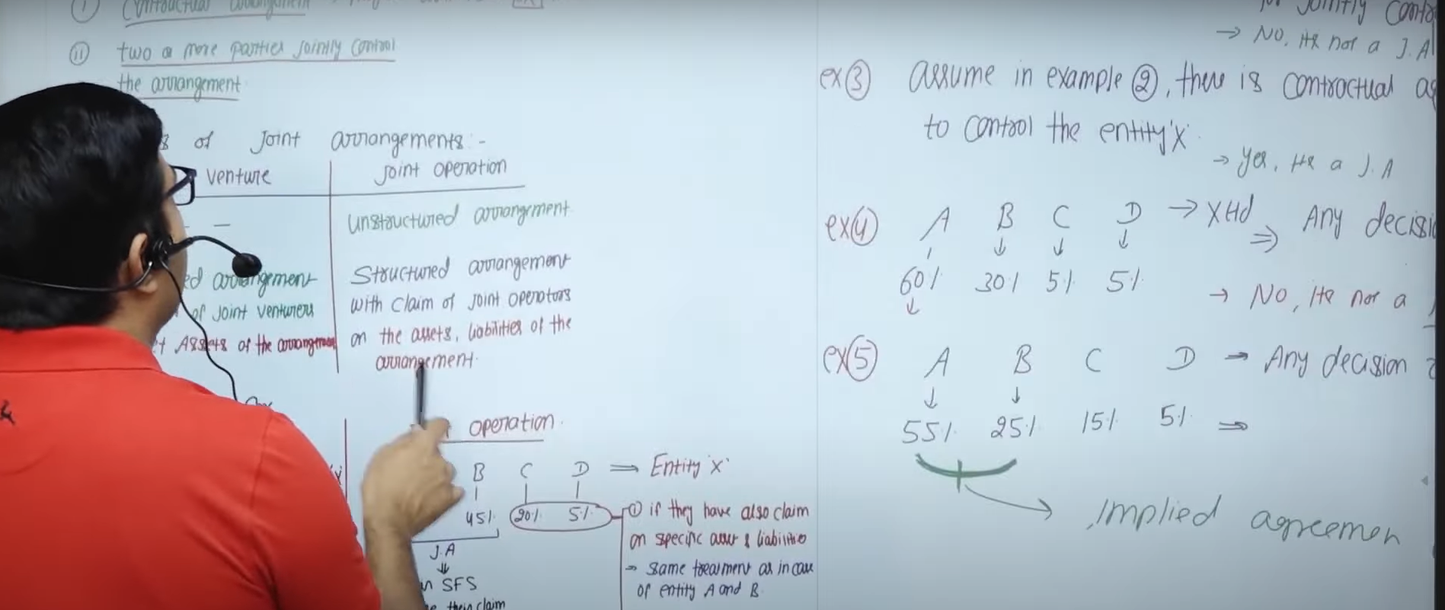 (i) Contractual arrangement
(ii) two a more parties jointly control
the arrangement
of Joint arrangements:-
venture
Joint operation
—
Unstructured arrangement
ed arrangement
of Joint venturers
Assets of the arrangement
Structured arrangement
with claim of Joint operators
on the assets, liabilities of the
arrangement.
operation.
B C D ⇒ Entity 'X'
45% 20% 5%
J.A
↓
SFS
their claim
① if they have also claim
on specific asset & liabilities
⇒ same treatment as in case
of entity A and B
for Jointly
→ No, It's not a J.A
ex③ assume in example ②, there is contractual
to control the entity 'X'.
→ Yes, It's a J.A
ex④ A B C D → X Ltd ⇒ Any
60% 30% 5% 5%
→ No, It's not a
ex⑤ A B C D → Any decision
55% 25% 15% 5% ⇒
Implied agreemen